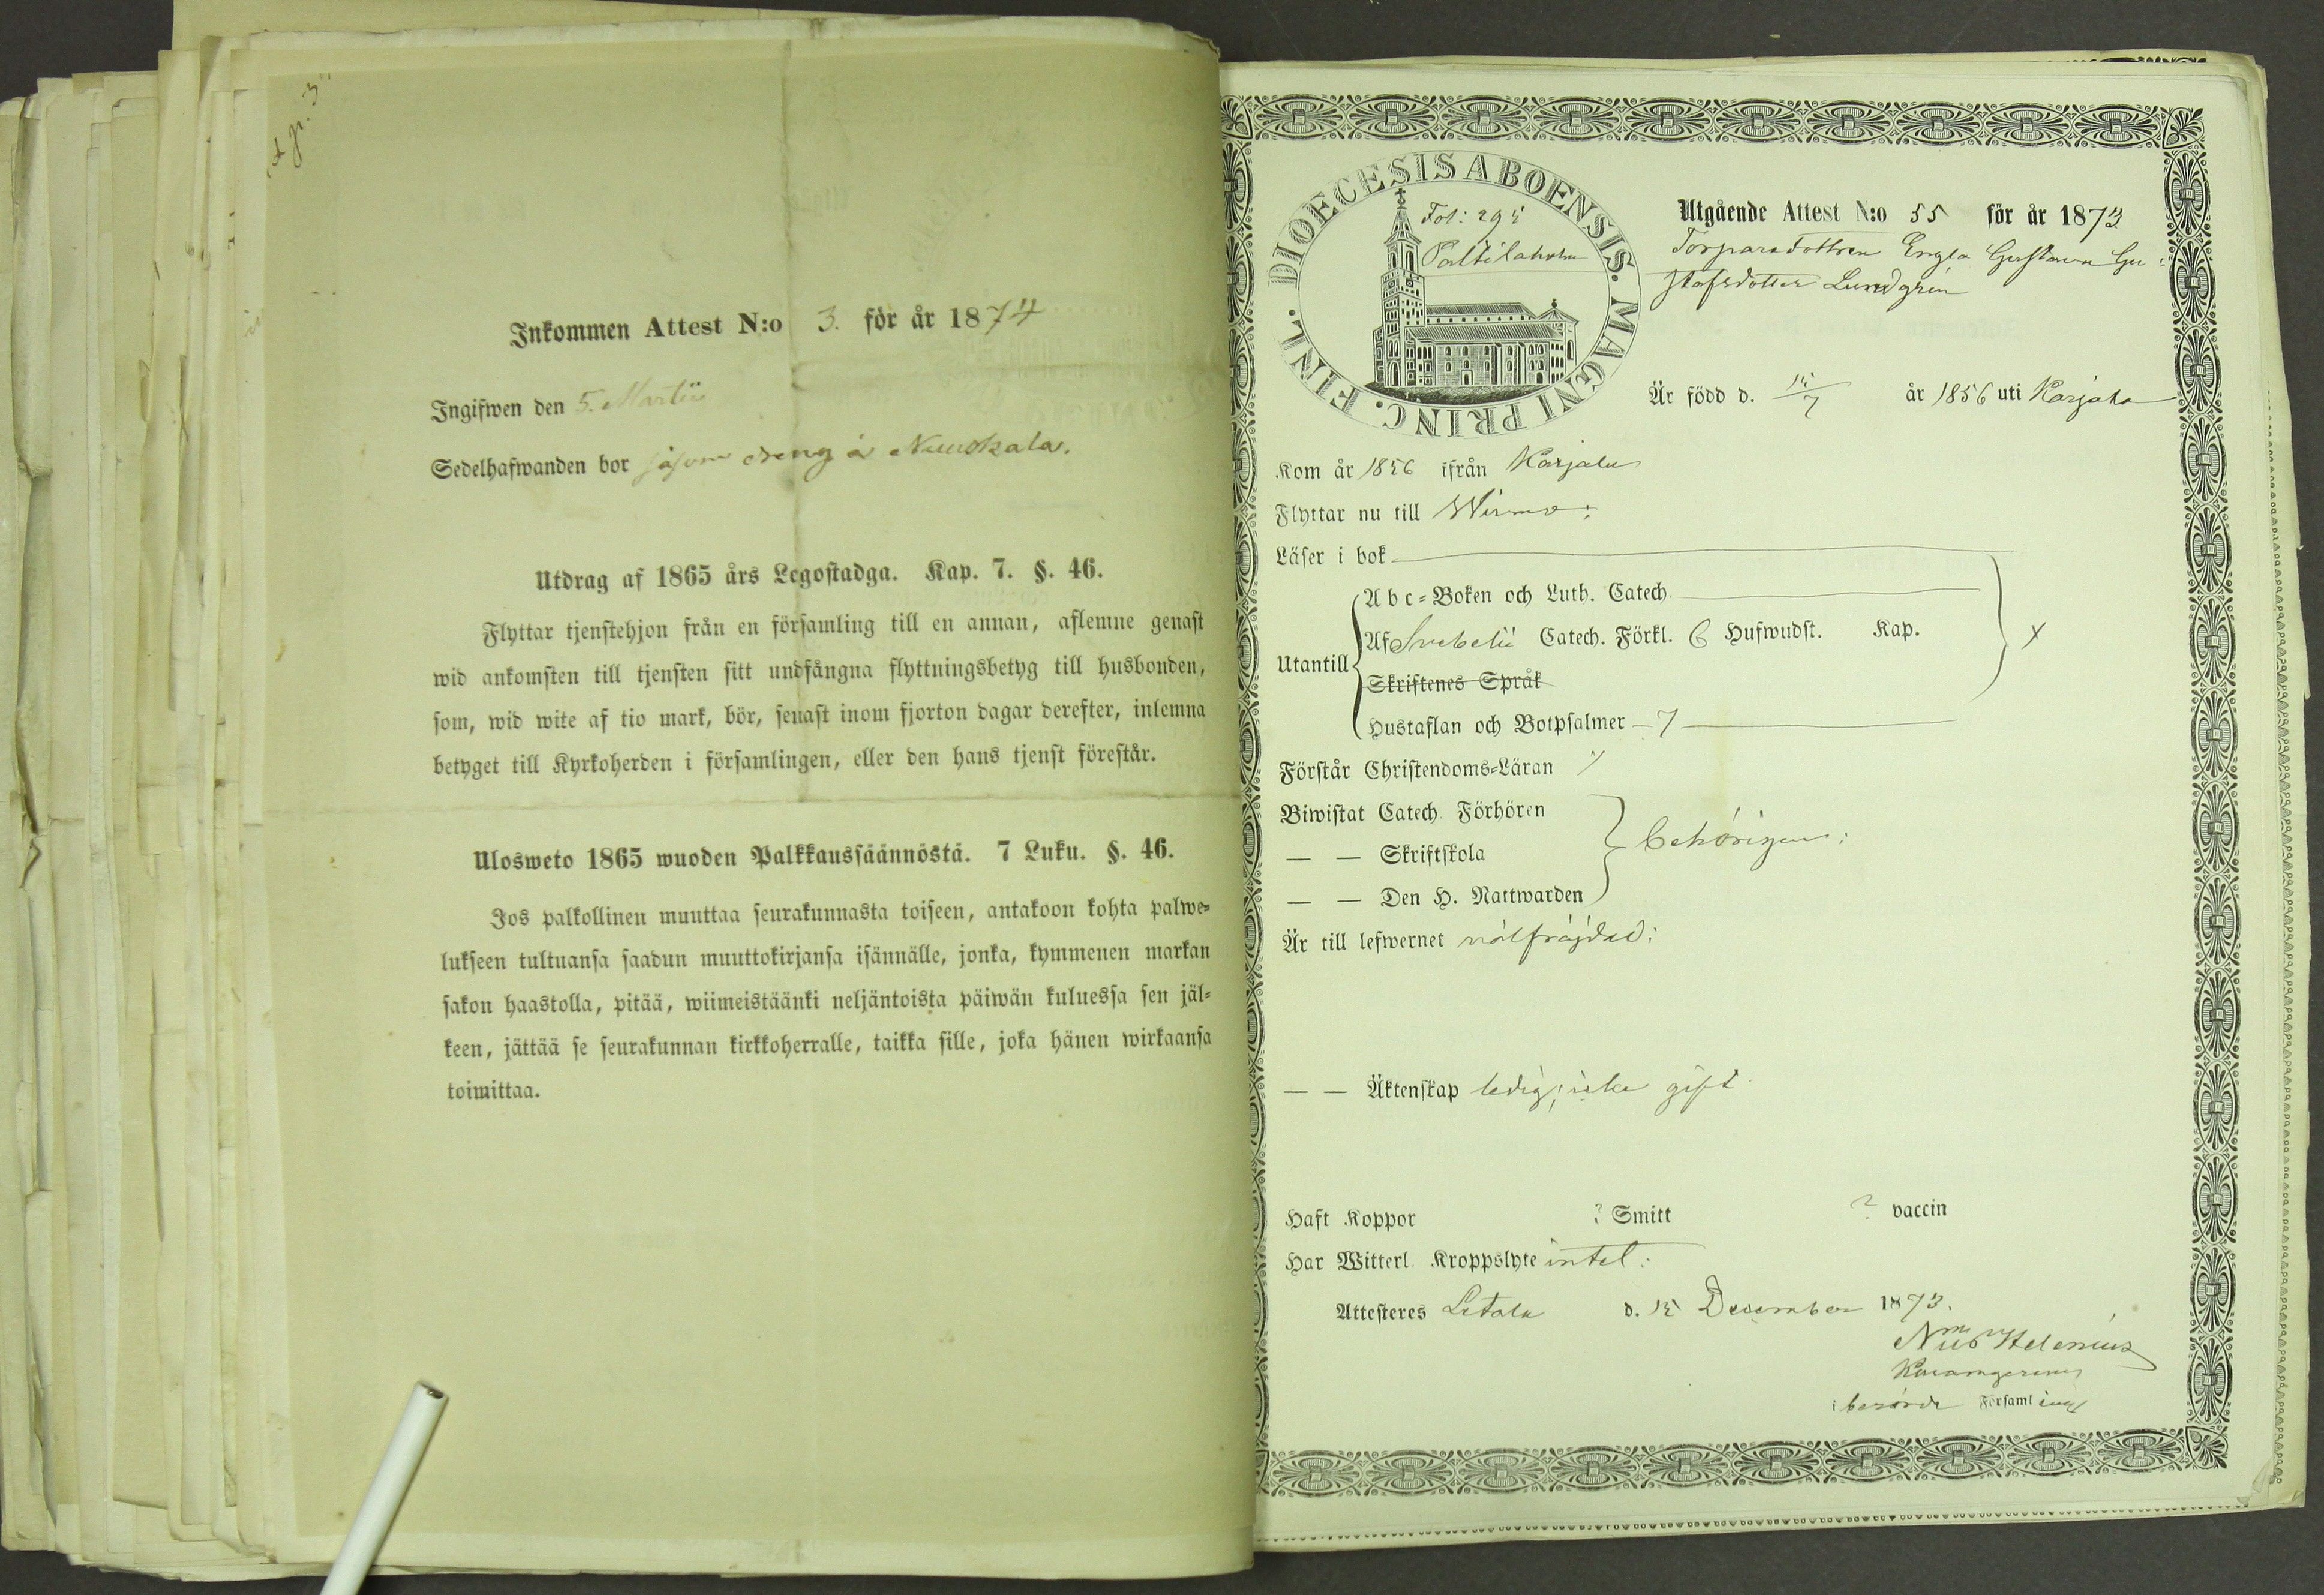 Inkommen Attest N:o 3. för år 1874
Ingifwen den 5. Martii
Sedelhafwanden bor såsom dreng å Nuuskala.
Utdrag af 1865 års Legostadga. Kap. 7. §. 46.
Flyttar tjenstehjon från en församling till en annan, aflemne genast
wid ankomsten till tjensten sitt undfångna flyttningsbetyg till husbonden,
som, wid wite af tio mark, bör, senast inom fjorton dagar derefter, inlemna
betyget till Kyrkoherden i församlingen, eller den hans tjenst förestår.
Ulosweto 1865 wuoden Palkkaussäännöstä. 7 Luku. §. 46.
Jos palkollinen muuttaa seurakunnasta toiseen, antakoon kohta palwe=
lukseen tultuansa saadun muuttokirjansa isännälle, jonka, kymmenen markan
sakon haastolla, pitää, wiimeistäänki neljäntoista päiwän kuluessa sen jäl=
keen, jättää se seurakunnan kirkkoherralle, taikka sille, joka hänen wirkaansa
toimittaa.
DIOECESIS ABOENSIS. MAGNI PRINC. FINL.
Fol:
Utgående Attest N:o 55 för år 1873
Torparedottren Engla Gustava Gu:
stafsdotter Lundgrén
Är född d. år 1856 uti Karjala
Kom år 1856 ifrån Karjala
Flyttar nu till Wirmo:
Läser i bok
Abc=Boken och Luth. Catech.
Utantill
Af Svebelii Catech. Förkl. 6 Hufwudst. Kap.
Skriftenes Språk
Hustaflan och Botpsalmer 7
Förstår Christendoms=Läran
Biwistat Catech. Förhören
— — Skriftskola
behörigen:
— — Den H. Nattwarden
Är till lefwernet välfräjdad:
— — Äktenskap ledig; icke gift
Haft Koppor ? Smitt ? vaccin
Har Witterl. Kroppslyte intet:
Attesteres Letala d. 15 December 1873.
Helenius
i berörde Församling